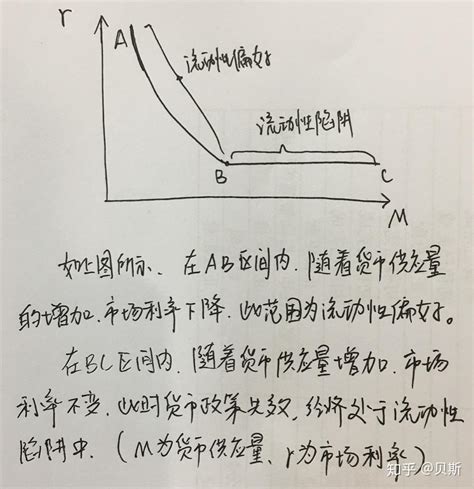 r
A
流动性偏好
流动性陷阱
B
C
M
如上图所示、在AB区间内,随着货币供应量
的增加,市场利率下降,此范围为流动性偏好。
在BC区间内,随着货币供应量增加,市场
利率不变,此时货币政策失效,经济处于流动性
陷阱中.(M为货币供应量、r为市场利率)
知乎 @贝斯